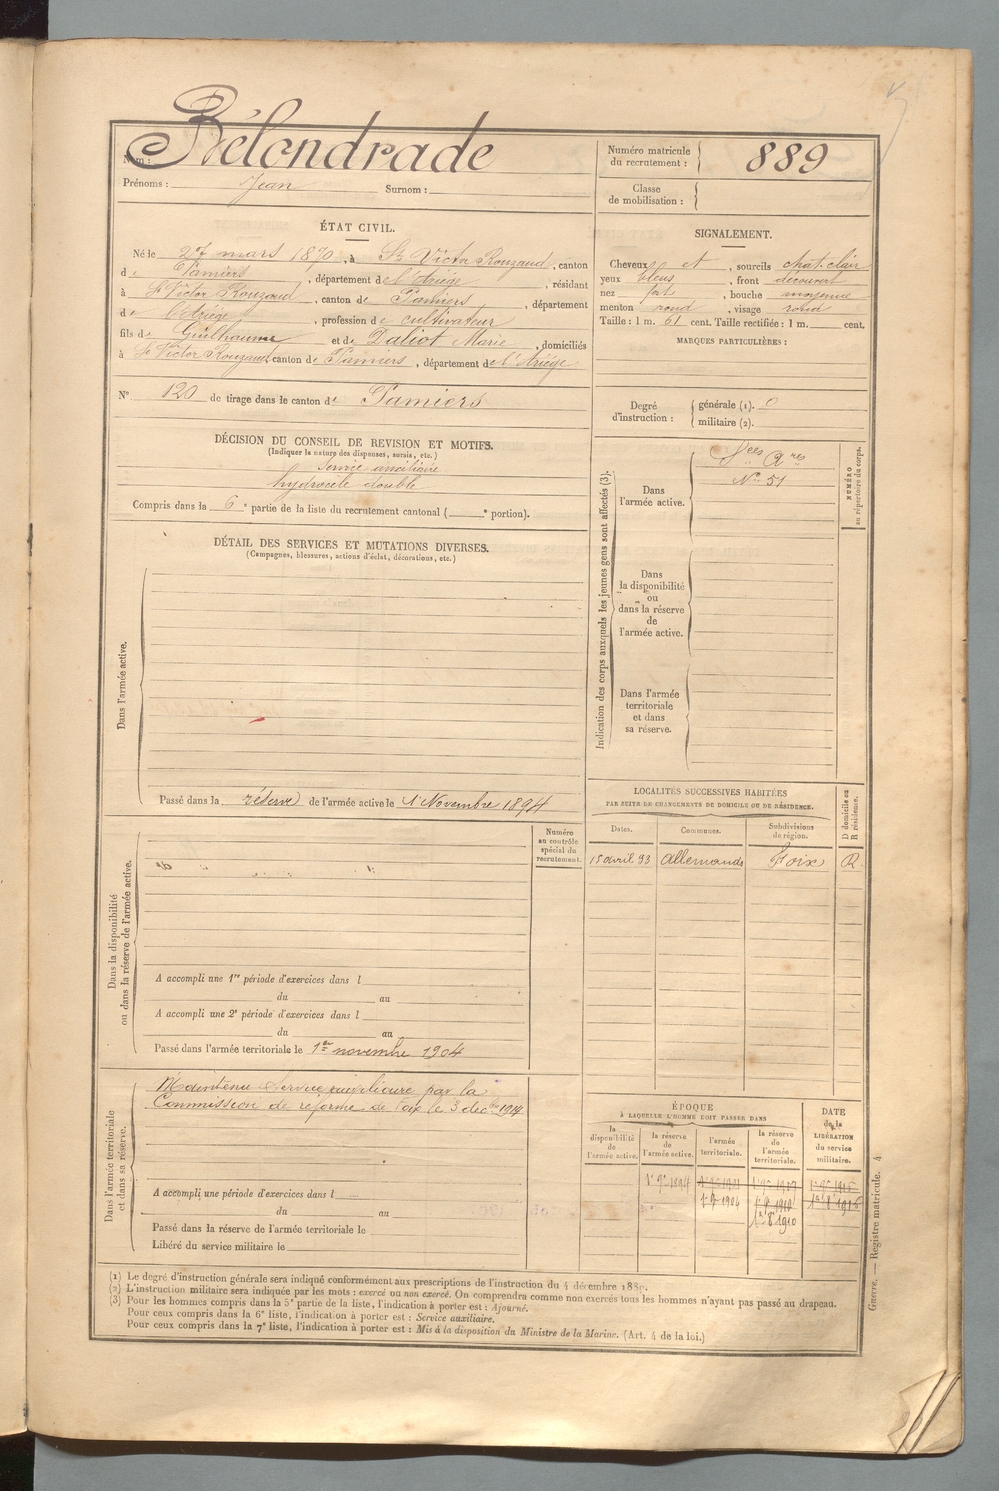 Nom : Bélondrade
Prénoms : Jean Surnom :
Numéro matricule
du recrutement : 889
Classe
de mobilisation :
ÉTAT CIVIL.
Né le 27 mars 1870, à St Victor Rouzaud, canton
de Pamiers, département de l'Ariége, résidant
à St Victor Rouzaud, canton de Pamiers, département
de l'Ariége, profession de cultivateur
fils de Guilhaume et de Daliot Marie, domiciliés
à St Victor Rouzaud canton de Pamiers, département de l'Ariége
SIGNALEMENT.
Cheveux et, sourcils chat. clair
yeux bleus, front découvert
nez fort, bouche moyenne
menton rond, visage rond
Taille : 1 m. 61 cent. Taille rectifiée : 1 m. cent.
MARQUES PARTICULIÈRES :
N° 120 de tirage dans le canton de Pamiers
Degré
d'instruction :
générale (1). 0
militaire (2).
DÉCISION DU CONSEIL DE REVISION ET MOTIFS.
(Indiquer la nature des dispenses, sursis, etc.)
Service auxiliaire
hydrocele double
Compris dans la 6e partie de la liste du recrutement cantonal ( e portion).
DÉTAIL DES SERVICES ET MUTATIONS DIVERSES.
(Campagnes, blessures, actions d'éclat, décorations, etc.)
Dans l'armée active.
Passé dans la réserve de l'armée active le 1 Novembre 1894
Indication des corps auxquels les jeunes gens sont affectés (3).
Dans
l'armée active.
Sces Ares
N° 51
NUMÉRO
au répertoire du corps.
Dans
la disponibilité
ou
dans la réserve
de
l'armée active.
Dans l'armée
territoriale
et dans
sa réserve.
LOCALITÉS SUCCESSIVES HABITÉES
PAR SUITE DE CHANGEMENTS DE DOMICILE OU DE RÉSIDENCE.
D domicile ou
R résidence.
Dates. Communes. Subdivisions
de région.
15 avril 93 Allemands Foix R
Dans la disponibilité
ou dans la réserve de l'armée active.
Numéro
au contrôle
spécial du
recrutement.
A accompli une 1re période d'exercices dans l
du au
A accompli une 2e période d'exercices dans l
du au
Passé dans l'armée territoriale le 1er novembre 1904
Dans l'armée territoriale
et dans sa réserve.
Maintenu Service auxiliaire par la
Commission de réforme de Foix le 3 décbre 1914
A accompli une période d'exercices dans l
du au
Passé dans la réserve de l'armée territoriale le
Libéré du service militaire le
ÉPOQUE
À LAQUELLE L'HOMME DOIT PASSER DANS
DATE
de la
LIBÉRATION
du service
militaire.
la
disponibilité
de
l'armée active.
la réserve
de
l'armée active.
l'armée
territoriale.
la réserve
de
l'armée
territoriale.
1er 9bre 1894
1 9 1904
1 8 1910
Guerre. — Registre matricule. 4
(1) Le degré d'instruction générale sera indiqué conformément aux prescriptions de l'instruction du 4 décembre 1889.
(2) L'instruction militaire sera indiquée par les mots : exercé ou non exercé. On comprendra comme non exercés tous les hommes n'ayant pas passé au drapeau.
(3) Pour les hommes compris dans la 5e partie de la liste, l'indication à porter est : Ajourné.
Pour ceux compris dans la 6e liste, l'indication à porter est : Service auxiliaire.
Pour ceux compris dans la 7e liste, l'indication à porter est : Mis à la disposition du Ministre de la Marine. (Art. 4 de la loi.)